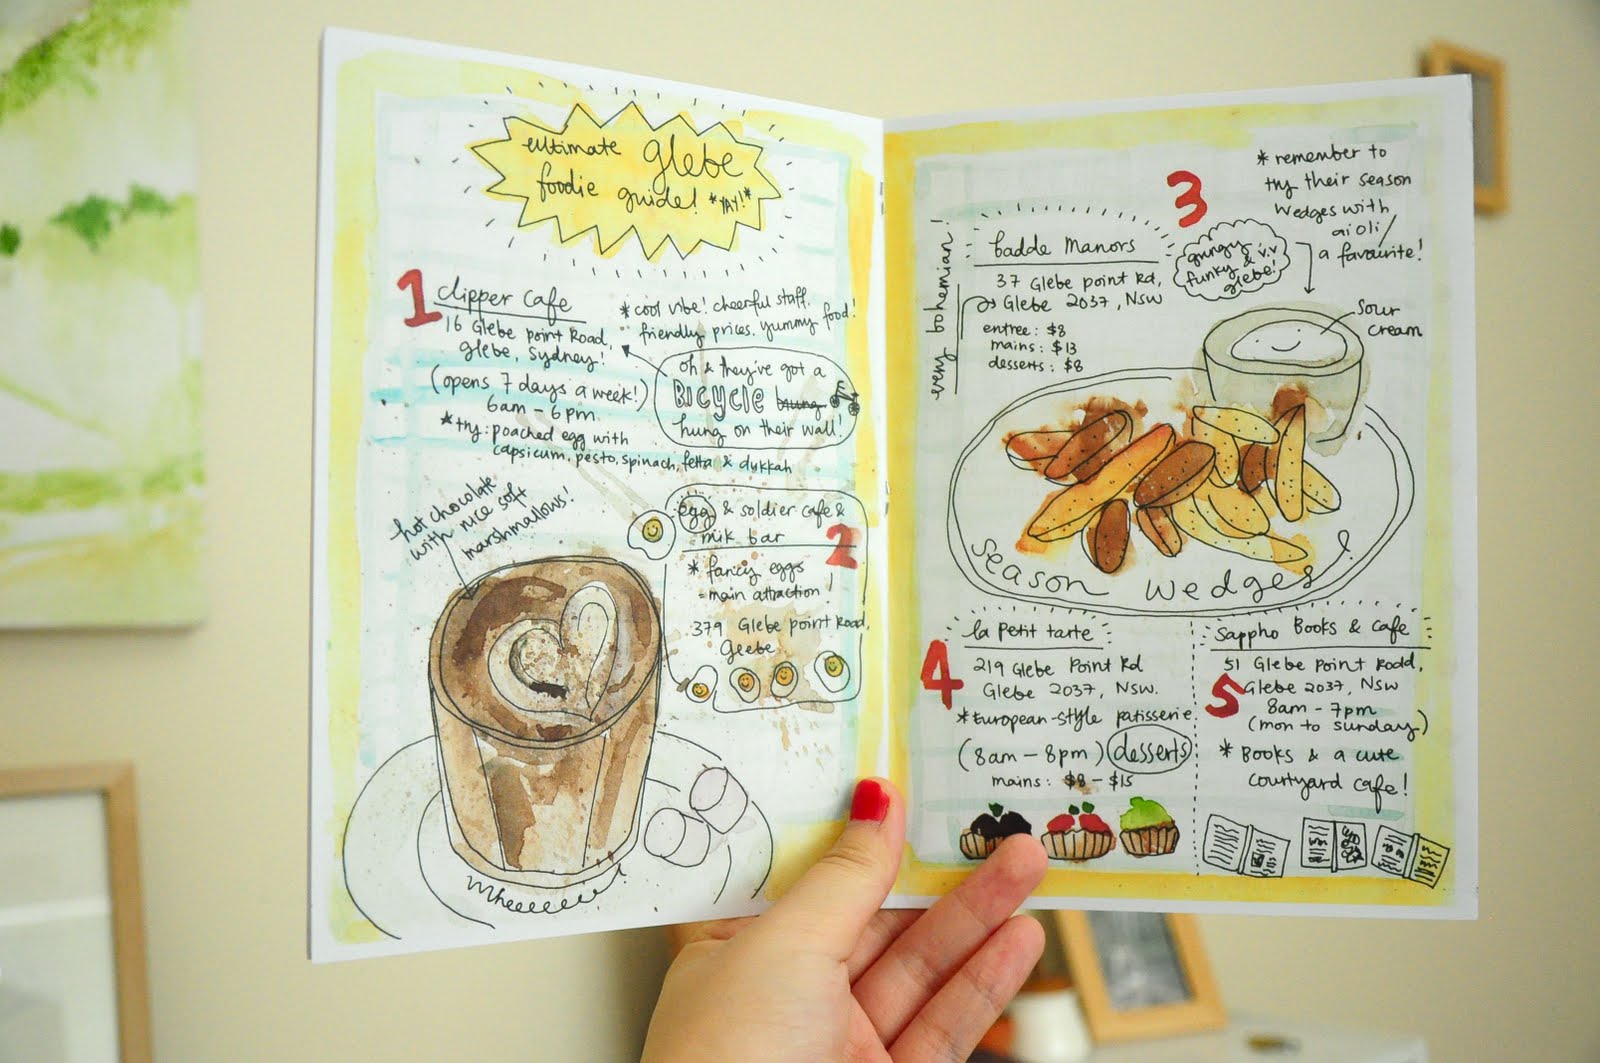 ultimate glebe
foodie guide! *YAY!*
1 clipper cafe
16 Glebe point Road,
glebe, Sydney!
(opens 7 days a week!)
6am - 6pm.
* try: poached egg with
capsicum, pesto, spinach, fetta & dukkah
* cool vibe! cheerful staff.
friendly prices. yummy food!
oh & they've got a
BICYCLE
hung on their wall!
hot chocolate
with nice soft
marshmallows!
Wheeeeeee!
2
egg & soldier cafe &
milk bar
* fancy eggs
= main attraction!
379 Glebe point Road,
Geebe
3
very bohemian!
badde manors
37 Glebe point Rd,
Glebe 2037, NSW
entree: $8
mains: $13
desserts: $8
grungy
funky & v.v
glebe!
* remember to
try their season
wedges with
aioli
a favourite!
sour
cream
season wedges!
4
la petit tarte
219 Glebe Point Rd
Glebe 2037, NSW.
* European-style patisserie.
(8am - 8pm) desserts
mains: $8 - $15
5
sappho Books & cafe
51 Glebe Point Road,
Glebe 2037, NSW
8am - 7pm
(mon to sunday)
* Books & a cute
courtyard cafe!